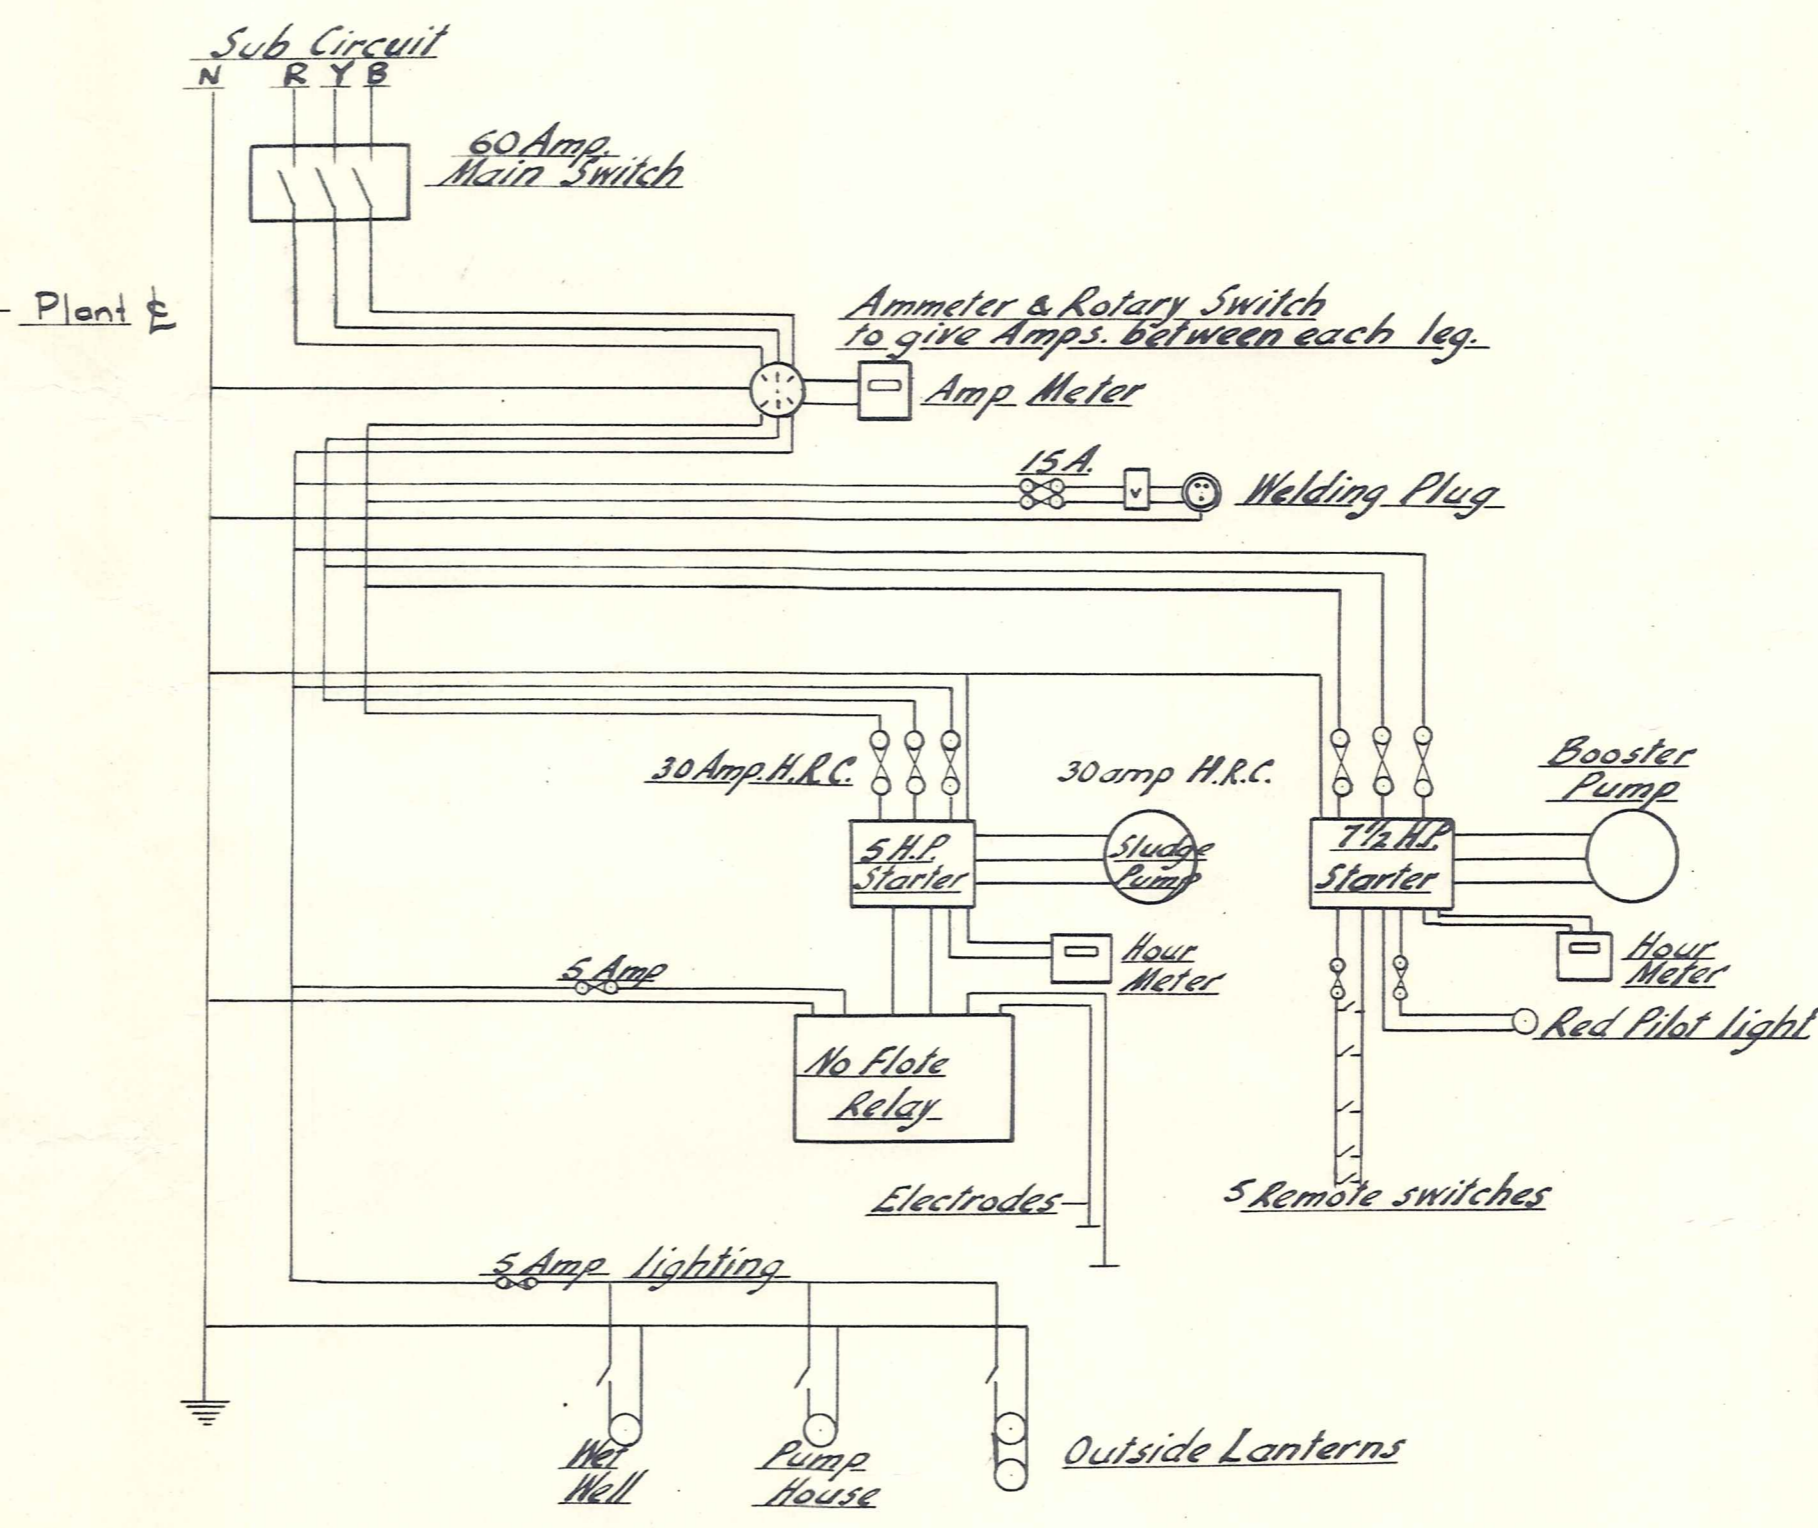 Sub Circuit
N R Y B
60 Amp.
Main Switch
Plant
Ammeter & Rotary Switch
to give Amps. between each leg.
Amp Meter
15 A.
V
Welding Plug
30 Amp. H.R.C.
30 amp H.R.C.
Booster
Pump
5 H.P
Starter
Sludge
Pump
7 1/2 H.P.
Starter
Hour
Meter
Hour
Meter
5 Amp
Red Pilot light
No Flote
Relay
Electrodes
5 Remote switches
5 Amp lighting
Wet
Well
Pump
House
Outside Lanterns